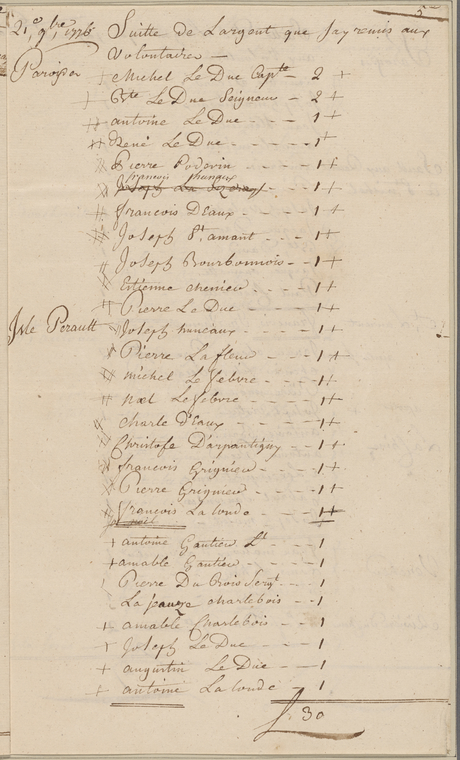 5
21e 9bre 1776 Suitte de Largent que Jay remis aux
Volontaires —
Paroisse
+ Michel Le Duc Capte - - 2 +
+ Bte Le Duc Seigneur - 2 +
antoine Le Duc - - - 1 +
René Le Duc - - - 1 +
Pierre Poderin - - - 1 +
françois huneaux
Joseph La
françois D'Eaux - - - 1 +
Joseph St amant - - - 1 +
Joseph Bourbonnois - - 1 +
Etienne chenieu - - - 1 +
Pierre Le Duc - - - 1 +
Isle Perault Joseph huneaux - - - 1 +
Pierre La fleur - - - 1 +
michel Le febvre - - - 1 +
noel Le febvre - - - 1 +
charle D'Eaux - - - 1 +
Christofe D'arpantigny 1 +
françois Grignieu - - - 1 +
Pierre Grignieu - - - 1 +
françois La londe - - - 1 +
+ antoine Gautieu Lt - 1
+ amable Gautieu - - 1
Pierre Du Bois Sergt - 1
La pause charlebois - - 1
+ amable Charlebois - - 1
+ Joseph Le Duc - - - 1
+ augustin Le Duc - - - 1
+ antoine La londe - - 1
30